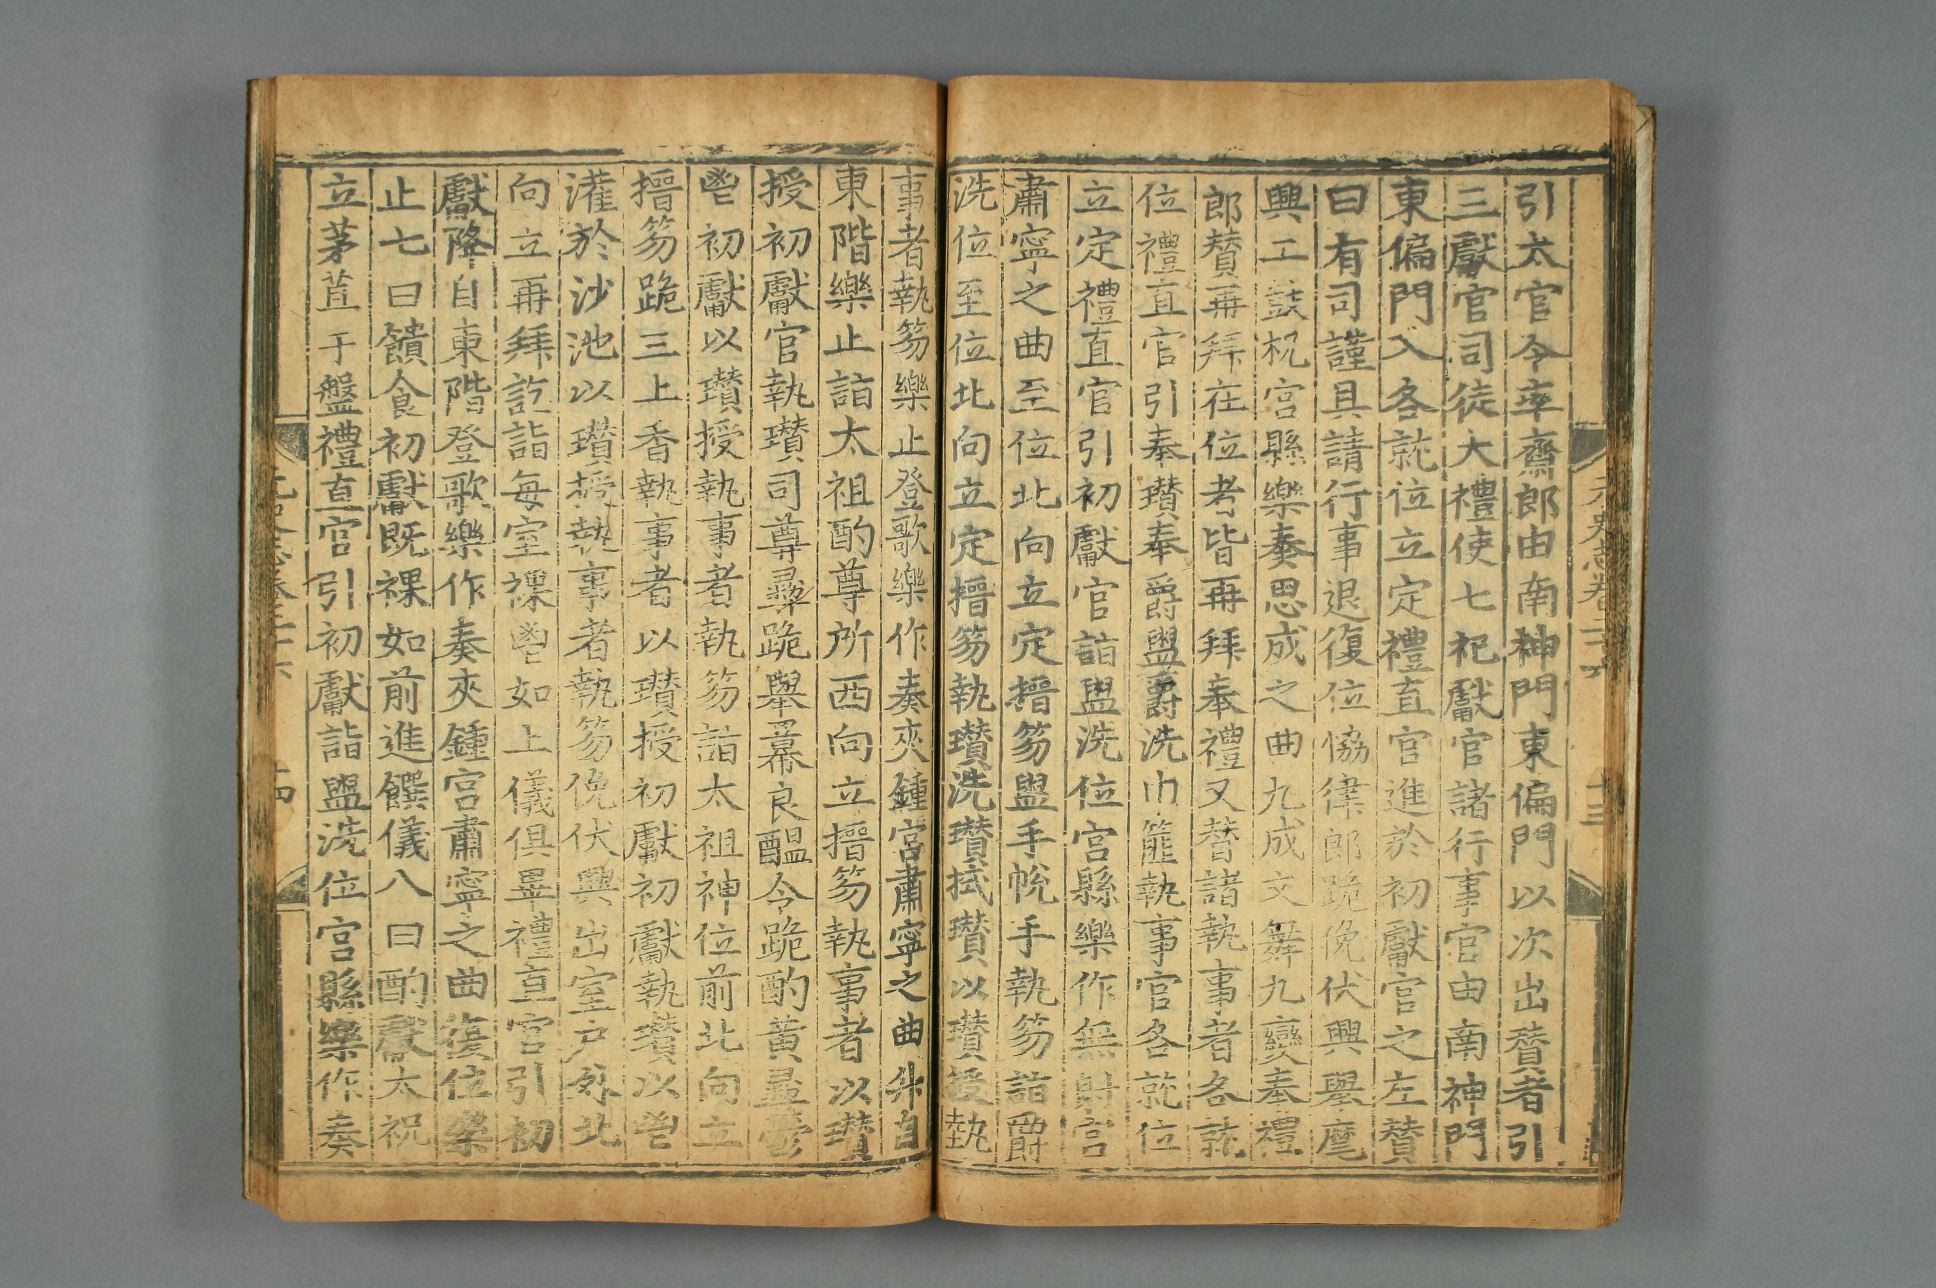 引太官令率齋郎由南神門東偏門以次出贊者引
三獻官司徒大禮使七祀獻官諸行事官由南神門
東偏門入各就位立定禮直官進於初獻官之左贊
曰有司謹具請行事退復位協律郎跪俛伏興舉麾
興工鼓柷宮縣樂奏思成之曲九成文舞九變奉禮
郎贊再拜在位者皆再拜奉禮又贊諸執事者各就
位禮直官引奉瓚奉爵盥爵洗巾篚執事官各就位
立定禮直官引初獻官詣盥洗位宮縣樂作無射宮
肅寧之曲至位北向立定搢笏盥手帨手執笏詣爵
洗位至位北向立定搢笏執瓚洗瓚拭瓚以瓚授執
事者執笏樂止登歌樂作奏夾鍾宮肅寧之曲升自
東階樂止詣太祖酌尊所西向立搢笏執事者以瓚
授初獻官執瓚司尊彝跪舉羃良醞令跪酌黃彝鬱
鬯初獻以瓚授執事者執笏詣太祖神位前北向立
搢笏跪三上香執事者以瓚授初獻初獻執瓚以鬯
灌於沙池以瓚授執事者執笏俛伏興出室戶外北
向立再拜訖詣每室祼鬯如上儀俱畢禮直官引初
獻降自東階登歌樂作奏夾鍾宮肅寧之曲復位樂
止七曰饋食初獻既祼如前進饌儀八曰酌獻太祝
立茅苴于盤禮直官引初獻詣盥洗位宮縣樂作奏
元史志卷二十六
十三
十四